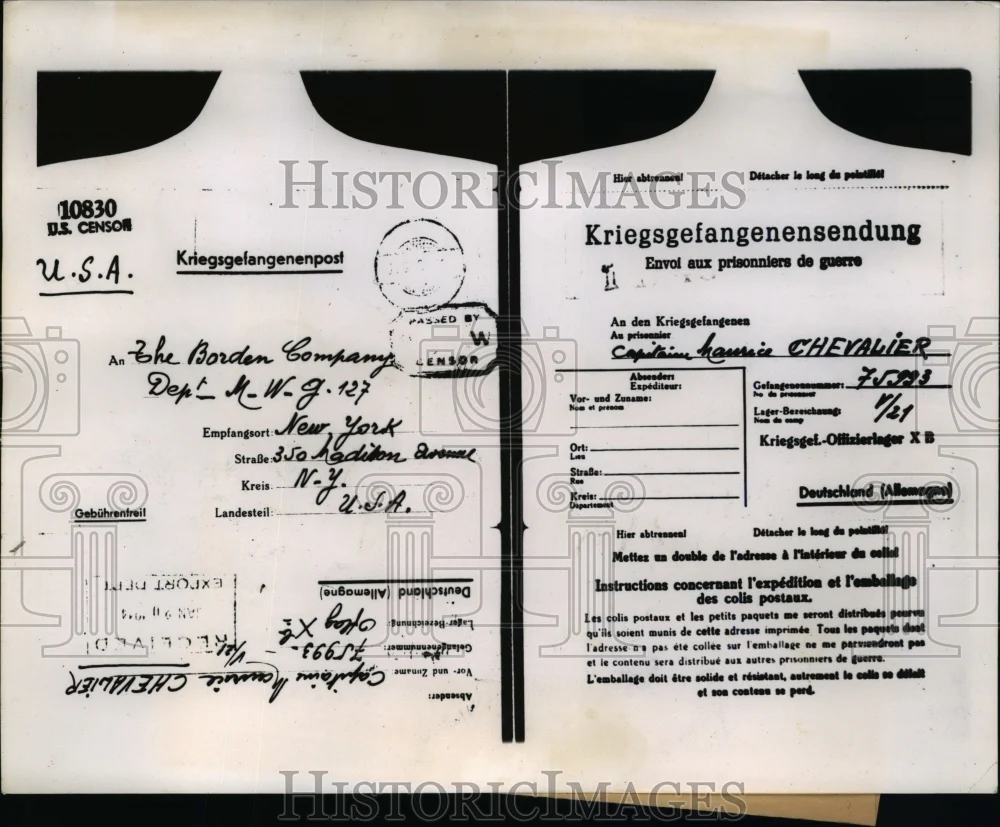 10830
U.S. CENSOR
U.S.A.
Kriegsgefangenenpost
PASSED BY
W
CENSOR
An The Borden Company
Dept M-W-G. 127
Empfangsort: New York
Straße: 350 Madison Avenue
Kreis: N-Y.
Landesteil: U.S.A.
Gebührenfrei
EXPORT DEPT
JAN
RECEIVED
Deutschland (Allemagne)
Lager-Bezeichnung: Oflag XB
Gefangenennummer: 75993-
Vor- und Zuname: Capitaine Maurice CHEVALIER
Absender:
Hier abtrennen! Détacher le long du pointillé!
Kriegsgefangenensendung
Envoi aux prisonniers de guerre
An den Kriegsgefangenen
Au prisonnier
Capitaine Maurice CHEVALIER
Absender:
Expéditeur:
Vor- und Zuname:
Nom et prénom
Ort:
Lieu
Straße:
Rue
Kreis:
Département
Gefangenennummer: 75993
No du prisonnier
Lager-Bezeichnung: V/21
Nom du camp
Kriegsgef.-Offizierlager X B
Deutschland (Allemagne)
Hier abtrennen! Détacher le long du pointillé!
Mettez un double de l'adresse à l'intérieur du colis!
Instructions concernant l'expédition et l'emballage
des colis postaux.
Les colis postaux et les petits paquets me seront distribués pourvu
qu'ils soient munis de cette adresse imprimée. Tous les paquets dont
l'adresse n'a pas été collée sur l'emballage ne me parviendront pas
et le contenu sera distribué aux autres prisonniers de guerre.
L'emballage doit être solide et résistant, autrement le colis se défait
et son contenu se perd.
HISTORIC IMAGES
HISTORIC IMAGES